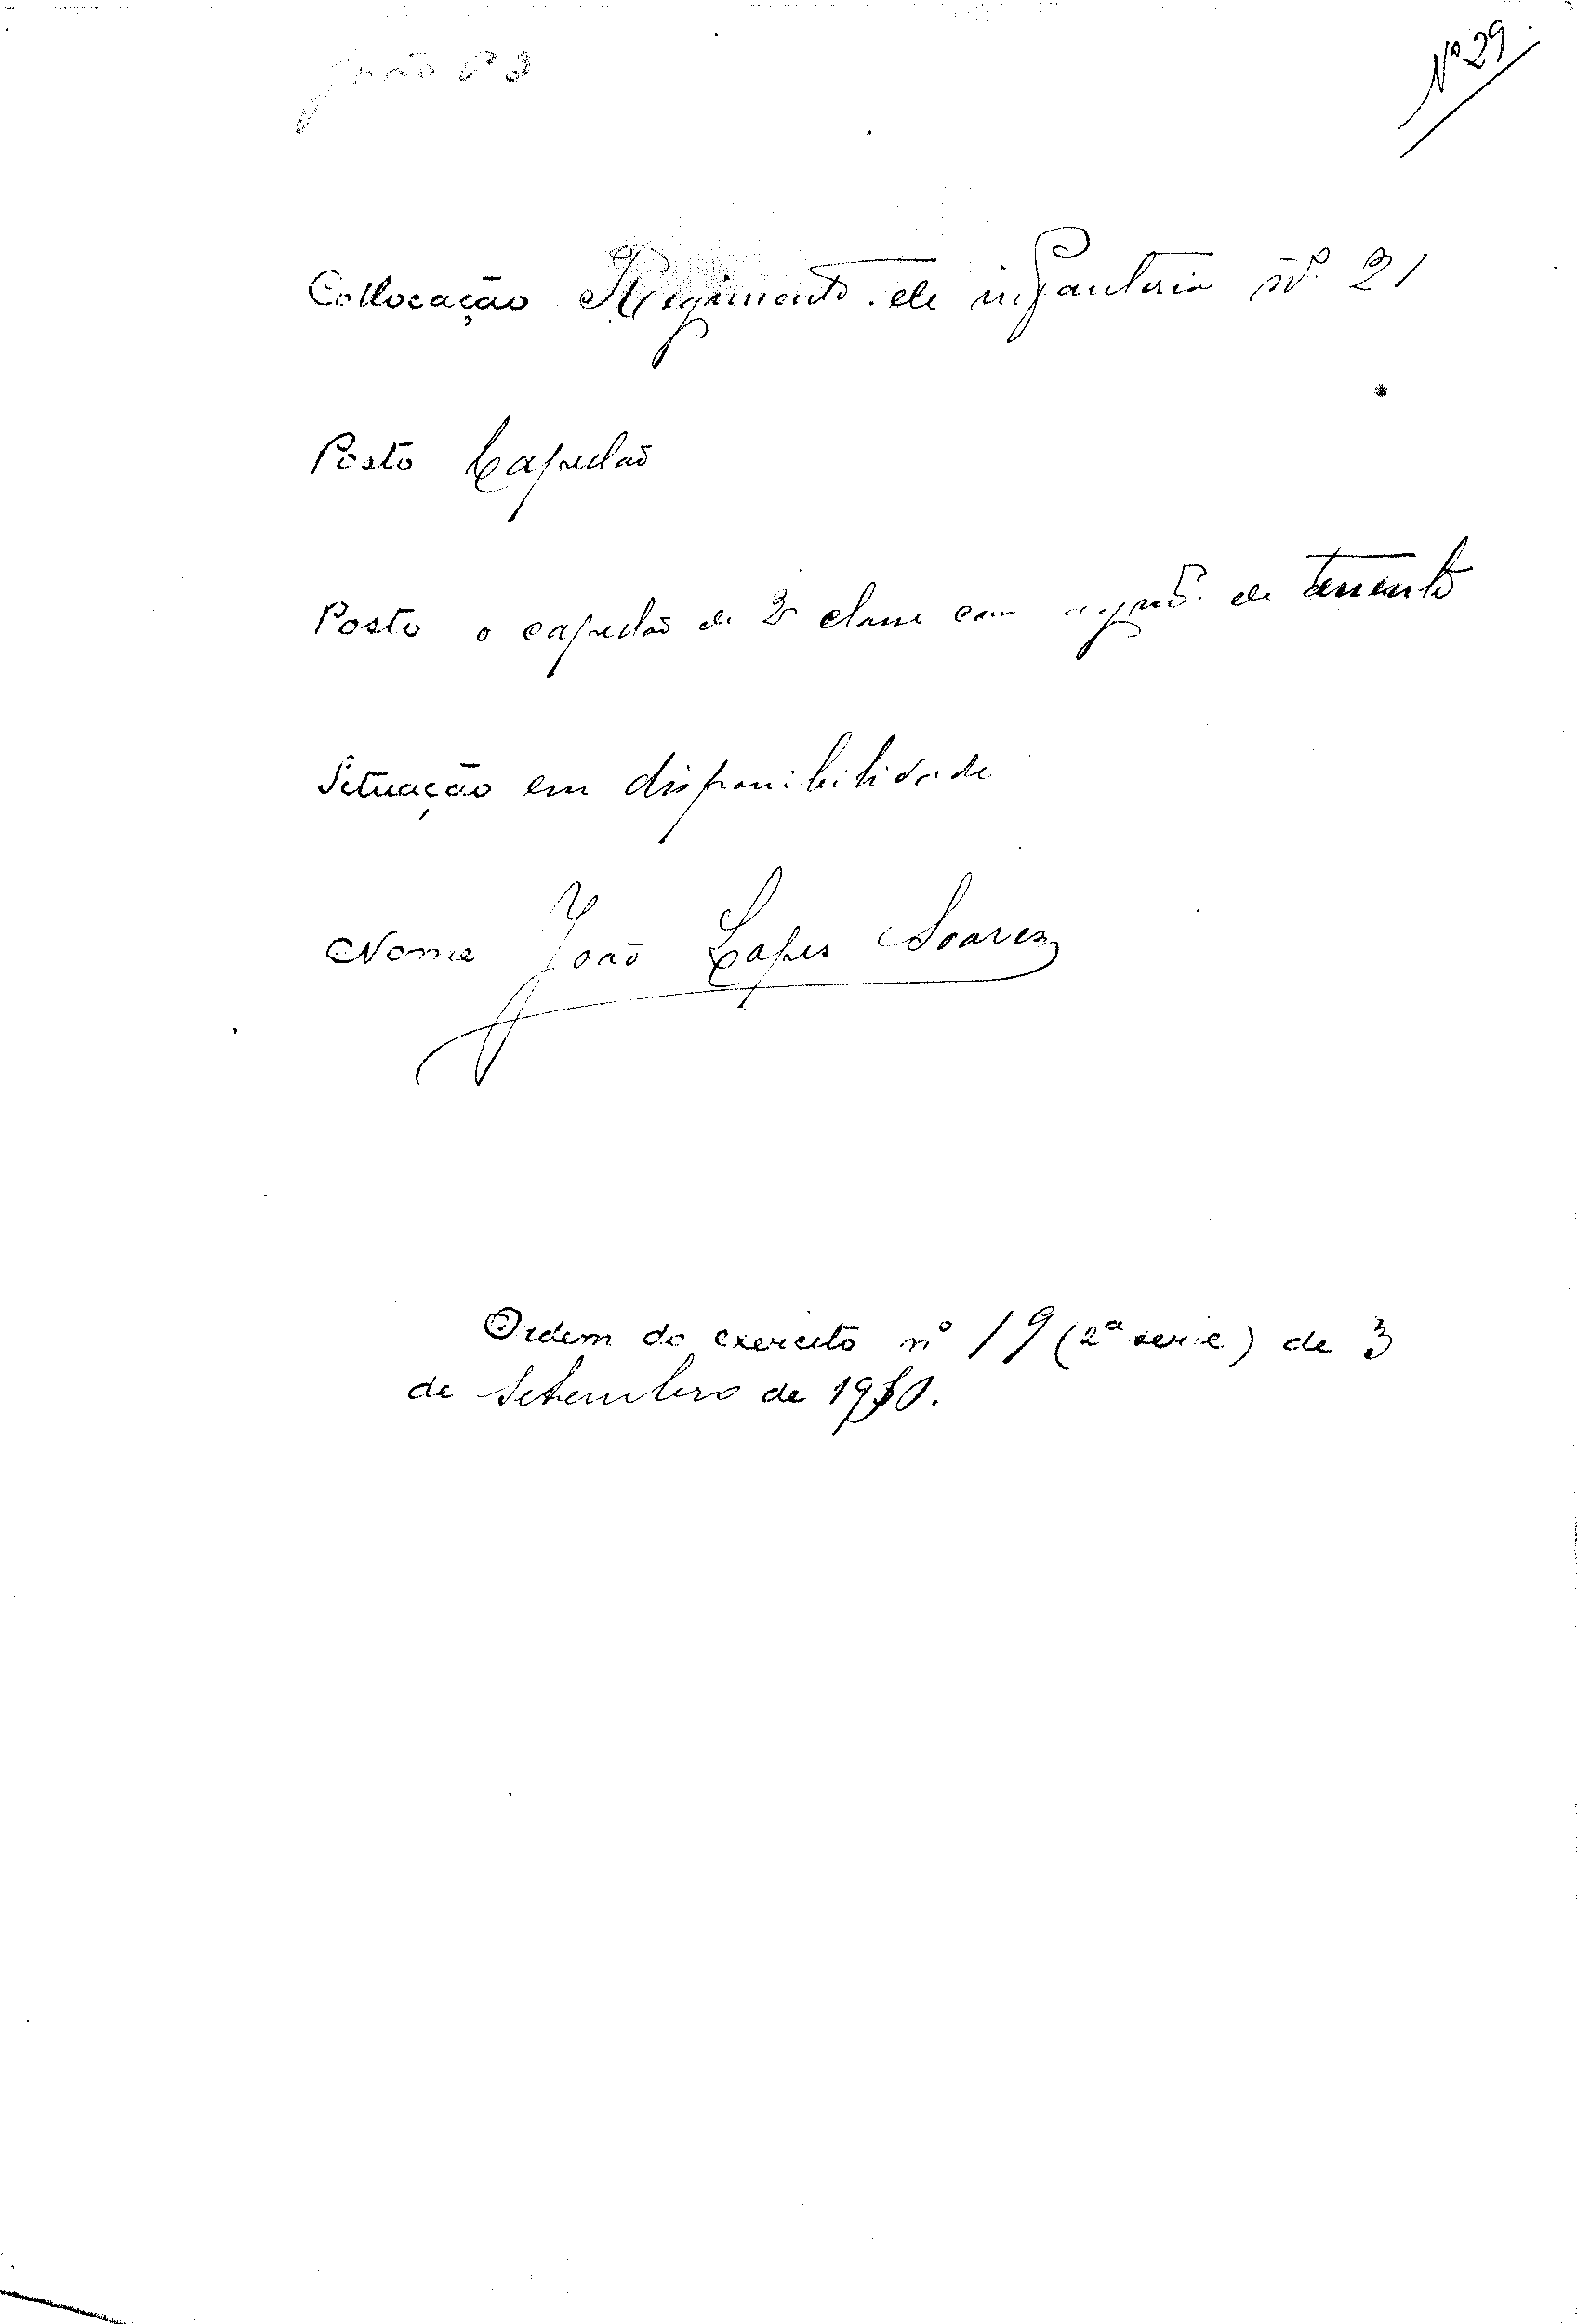 Nº 29
João
Collocação Regimento de infanteria nº 21
Posto Capellão
Posto o capellão de 2ª classe com de tenente
Situação em disponibilidade
Nome João Lopes Soares
Ordem do exercito nº 19 (2ª serie) de 3
de Setembro de 1910.